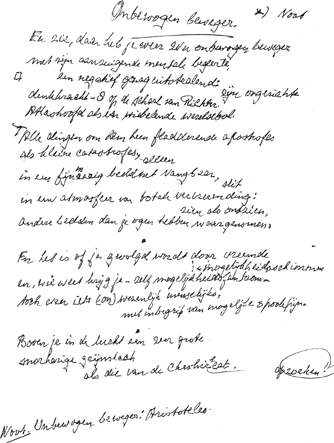 Onbewogen beweger. *) Noot
En zie, daar heb je weer zo'n onbewogen beweger
met zijn aanzuigende mensel begeerte,
een negatief gravitestralende zijn ongerichte
denkkracht - 0 op de schaal van Richter.
Atlashoofd als een wiebelende wereldbol.
Alle dingen om hem heen fladderende apostrofes
als kleine catastrofes, alleen
in een fijnmazig beddinet vangbaar,
in een atmosfeer van totale verbreending: dit
zien als ontzien,
andere bedden dan je ogen hebben waargenomen.
En het is of je gevolgd wordt door vreemde
mogelijkheidsschimmen
en, wie weet krijg je - zelf mogelijkheids
toch even iets (on)wezenlijk menselijks,
met inbegrip van mogelijke spookfijn.
Boven je in de lucht een zeer grote
snorharige grijnslach
als die van de Cheshire cat. opzoeken!!
Noot. Unbewogen beweger: Aristoteles.